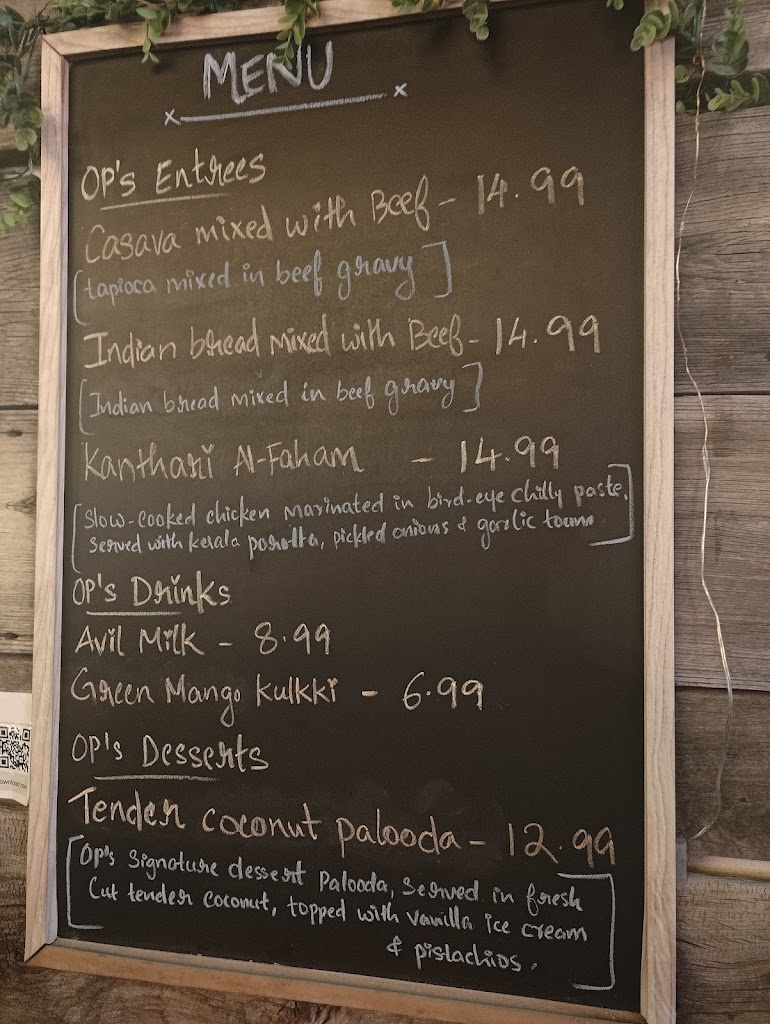 MENU
OP's Entrees
Casava mixed with Beef - 14.99
[tapioca mixed in beef gravy]
Indian bread mixed with Beef - 14.99
[Indian bread mixed in beef gravy]
Kanthari Al-Faham - 14.99
[Slow-cooked chicken marinated in bird-eye chilly paste,
served with kerala porotta, pickled onions & garlic toum]
OP's Drinks
Avil Milk - 8.99
Green Mango Kulkki - 6.99
OP's Desserts
Tender coconut palooda - 12.99
[Op's Signature dessert Palooda, served in fresh
Cut tender coconut, topped with vanilla ice cream
& pistachios.]